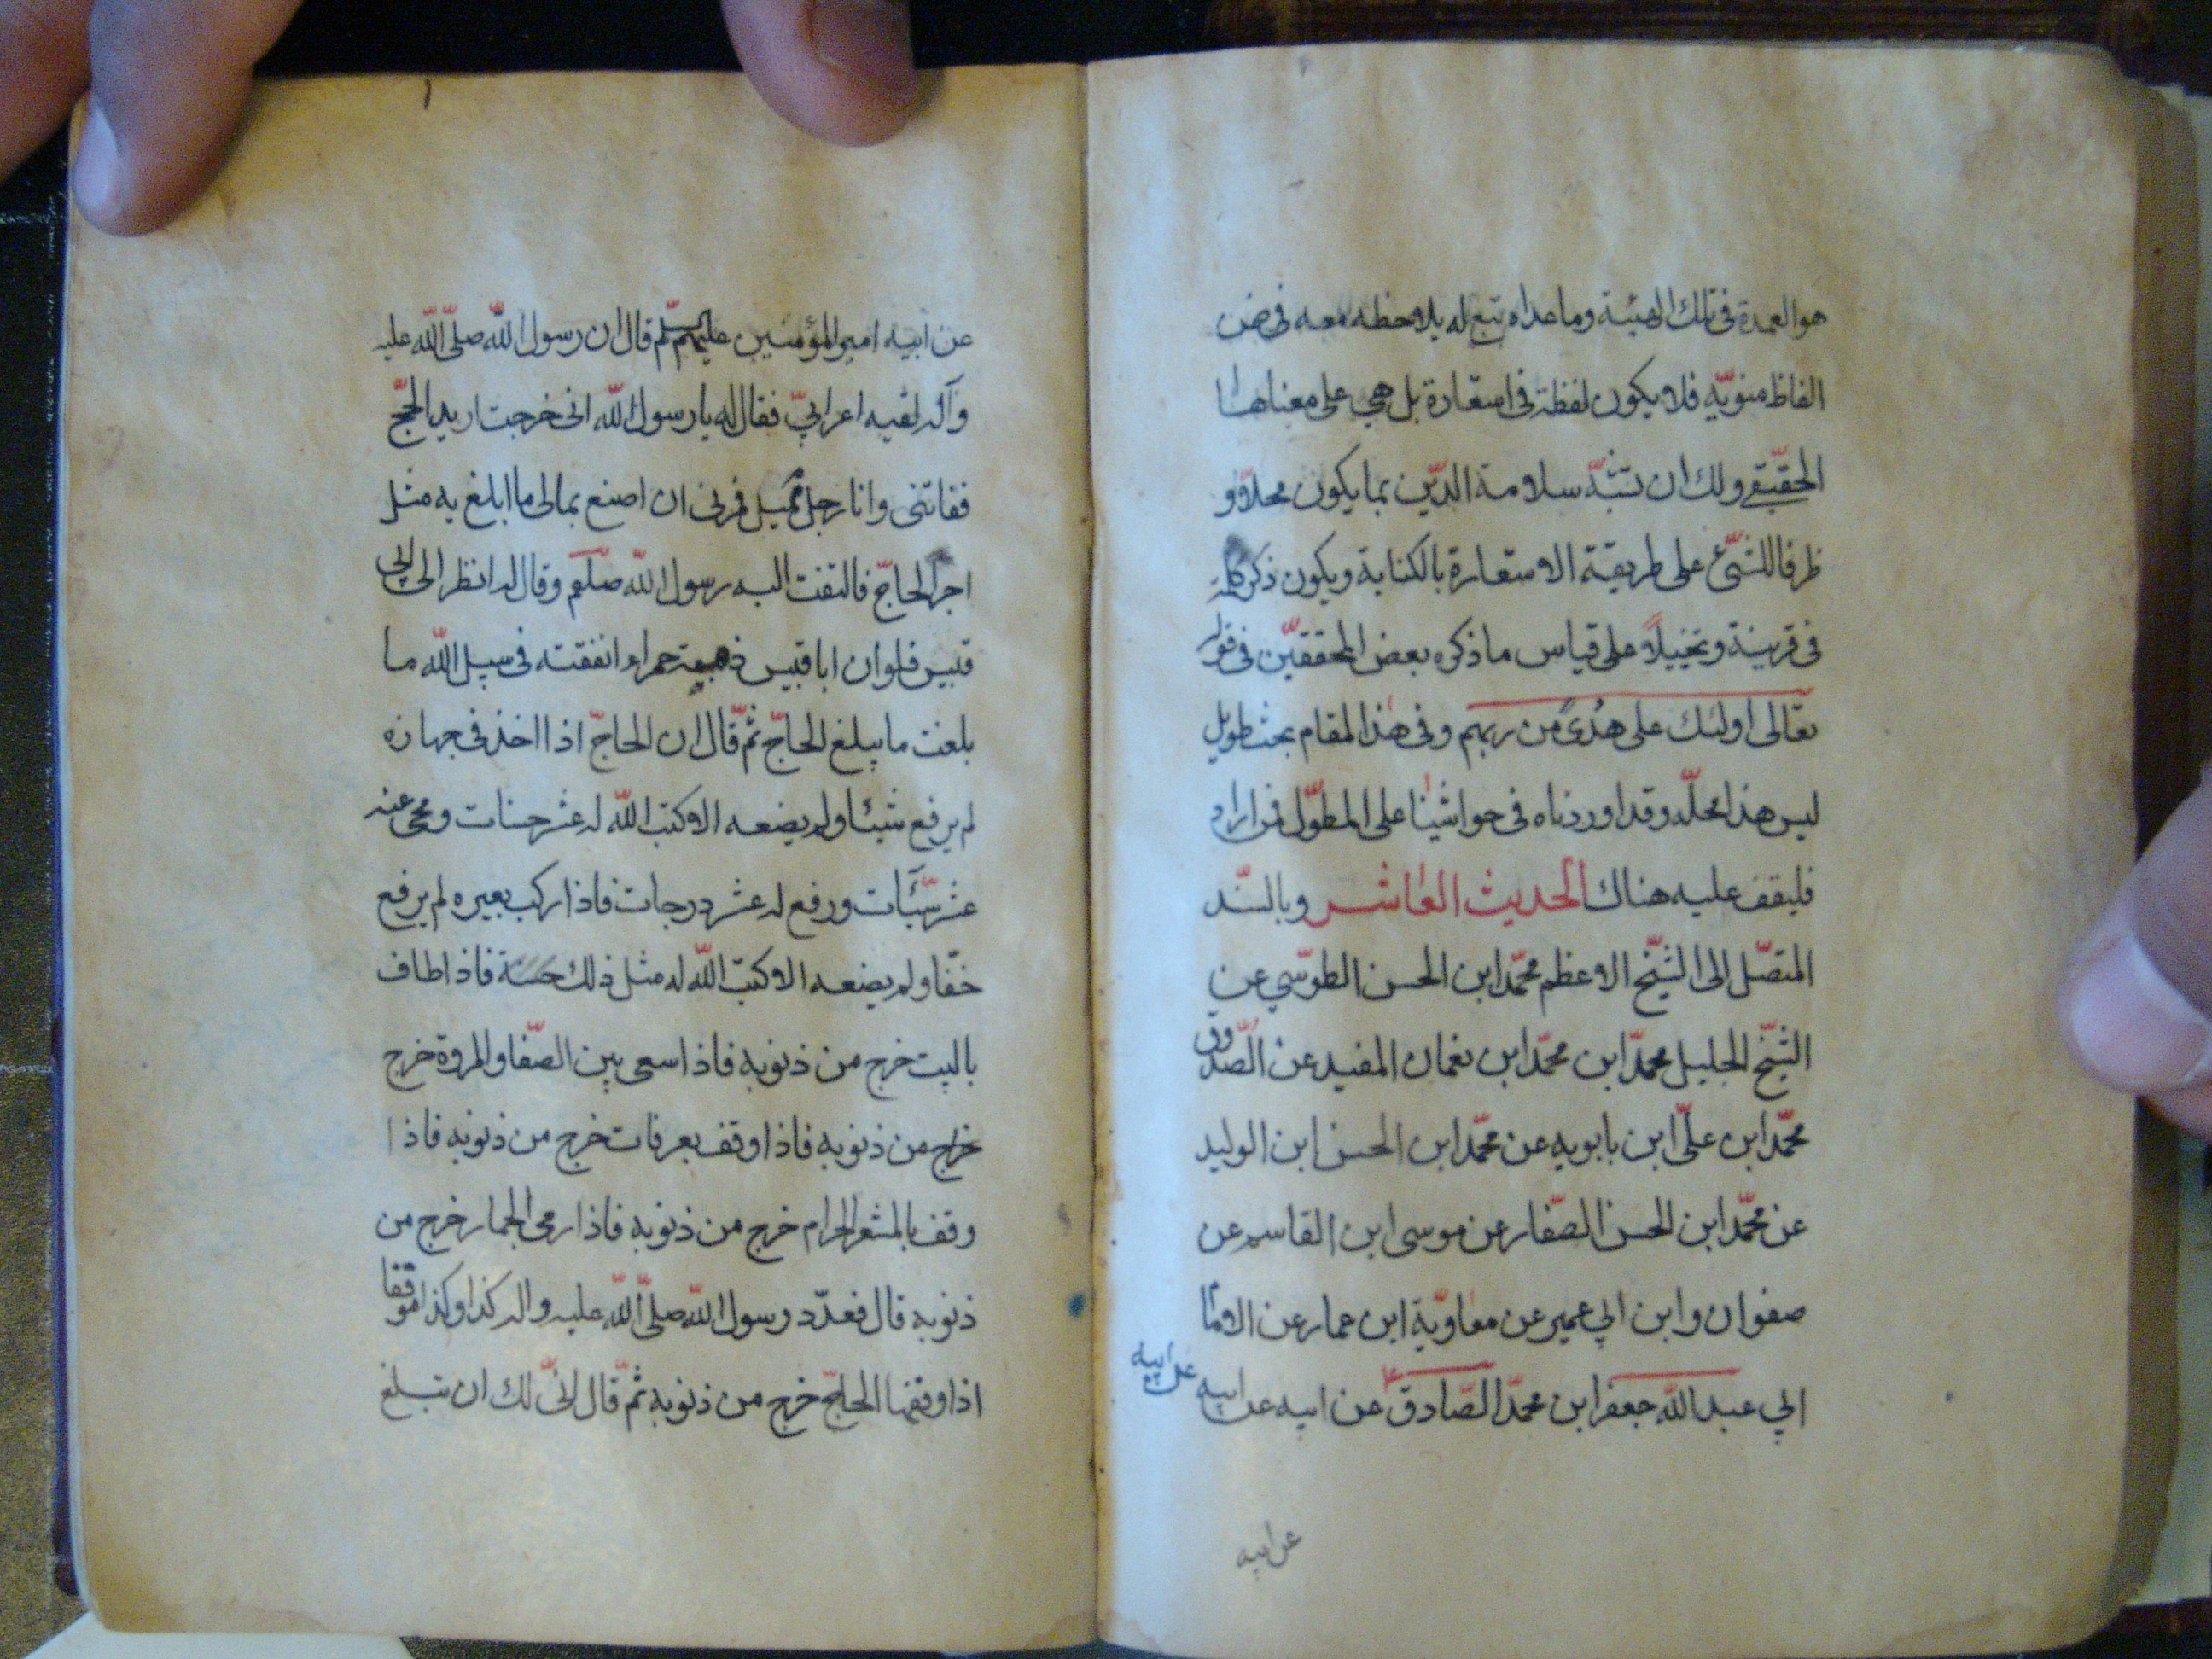 هو العمدة فى تلك الهيئة وما عداه تبع له يلاحظه معه فى ضمن
الفاظ منويّة فلا يكون لفظة فى استعارة بل هي على معناها
الحقيقي ولك ان تشبّه سلامة الدّين بما يكون محلّا و
ظرفا للشّئ على طريقة الاستعارة بالكناية ويكون ذكر كلمة
فى قرينة وتخييلاً على قياس ما ذكره بعض المحققّين فى قوله
تعالى اولئك على هُدًى من ربهم وفى هذا المقام بحث طويل
ليس هذا محلّه وقد اوردناه فى حواشينا على المطوّل فمن اراد
فليقف عليه هناك الحديث العاشر وبالسّند
المتصّل الى الشّيخ الاعظم محمّد ابن الحسن الطوسّي عن
الشّيخ الجليل محمّد ابن محمّد ابن نعمان المفيد عن الصّدوق
محمّد ابن علىّ ابن بابويه عن محمّد ابن الحسن ابن الوليد
عن محمّد ابن الحسن الصّفار عن موسى ابن القاسم عن
صفوان وابن ابي عمير عن معاويّة ابن عمار عن الاما
ابي عبد اللّه جعفر ابن محمّد الصّادق ع عن ابيه عن ابيه
عن ابيه
عن ابيه
عن ابيه امير المؤمنين عليهم السلم قال ان رسول اللّه صلّى اللّه عليه
وآله لقيه اعرابيّ فقال له يا رسول اللّه انى خرجت اريد الحجّ
ففاتنى وانا رجل مميل فمرنى ان اصنع بمالى ما ابلغ به مثل
اجر الحاجّ فالتفت اليه رسول اللّه صلعم وقال له انظر الى ابي
قبيس فلو ان ابا قبيس ذهبة حمراء انفقته فى سبيل اللّه ما
بلغت ما يبلغ الحاجّ ثمّ قال ان الحاجّ اذا اخذ فى جهازه
لم يرفع شيئا ولم يضعه الا كتب اللّه له عشر حسنات ومحى عنه
عشر سيّئات ورفع له عشر درجات فاذا ركب بعيره لم يرفع
خفّا ولم يضعه الا كتب اللّه له مثل ذلك حسنة فاذا طاف
بالبيت خرج من ذنوبه فاذا سعى بين الصّفا والمروة خرج
خرج من ذنوبه فاذا وقف بعرفات خرج من ذنوبه فاذا
وقف بالمشعر الحرام خرج من ذنوبه فاذا رمى الجمار خرج من
ذنوبه قال فعدّد رسول اللّه صلّى اللّه عليه واله كذا وكذا موقفا
اذا وقفها الحاجّ خرج من ذنوبه ثمّ قال انىّ لك ان تبلغ